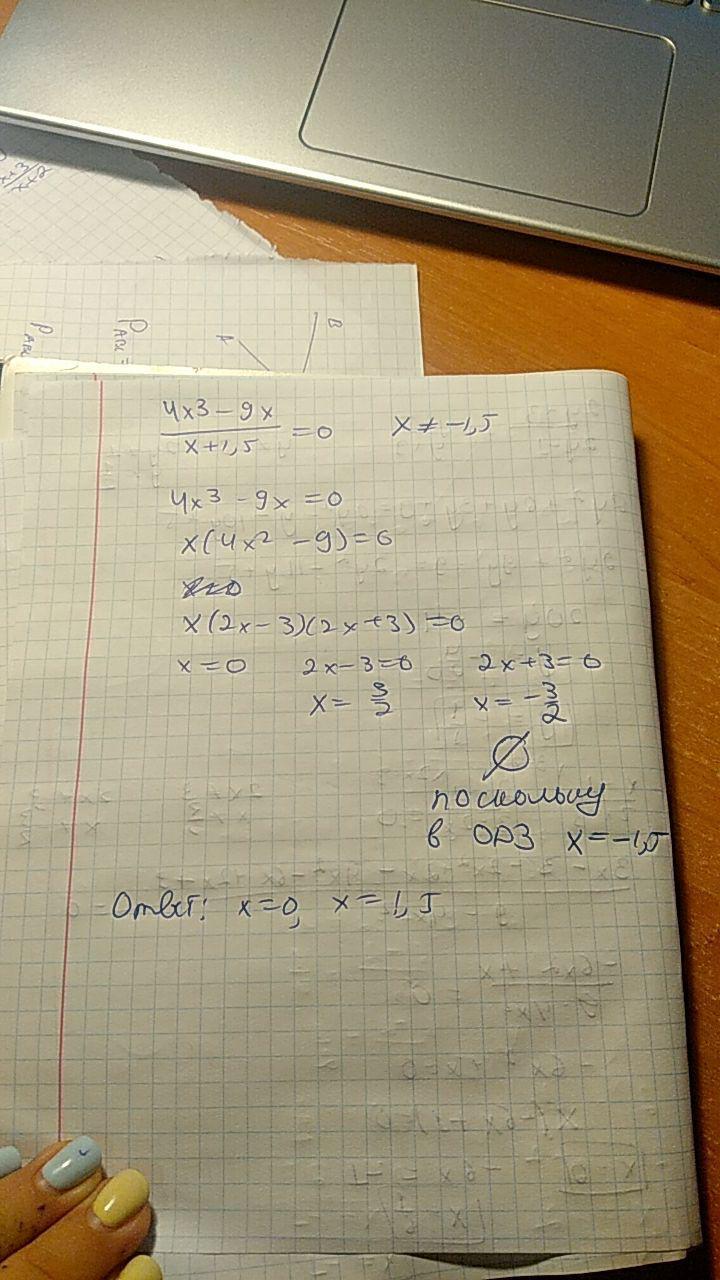 x+3/x+2
P_ABC
P_ABC =
A
B
4x3 - 9x / x+1,5 = 0 x ≠ -1,5
4x³ - 9x = 0
x(4x² - 9) = 0
x(2x-3)(2x+3) = 0
x = 0 2x-3=0 2x+3=0
x = 3/2 x = -3/2
∅
поскольку
в ОДЗ x = -1,5
Ответ: x=0, x=1,5